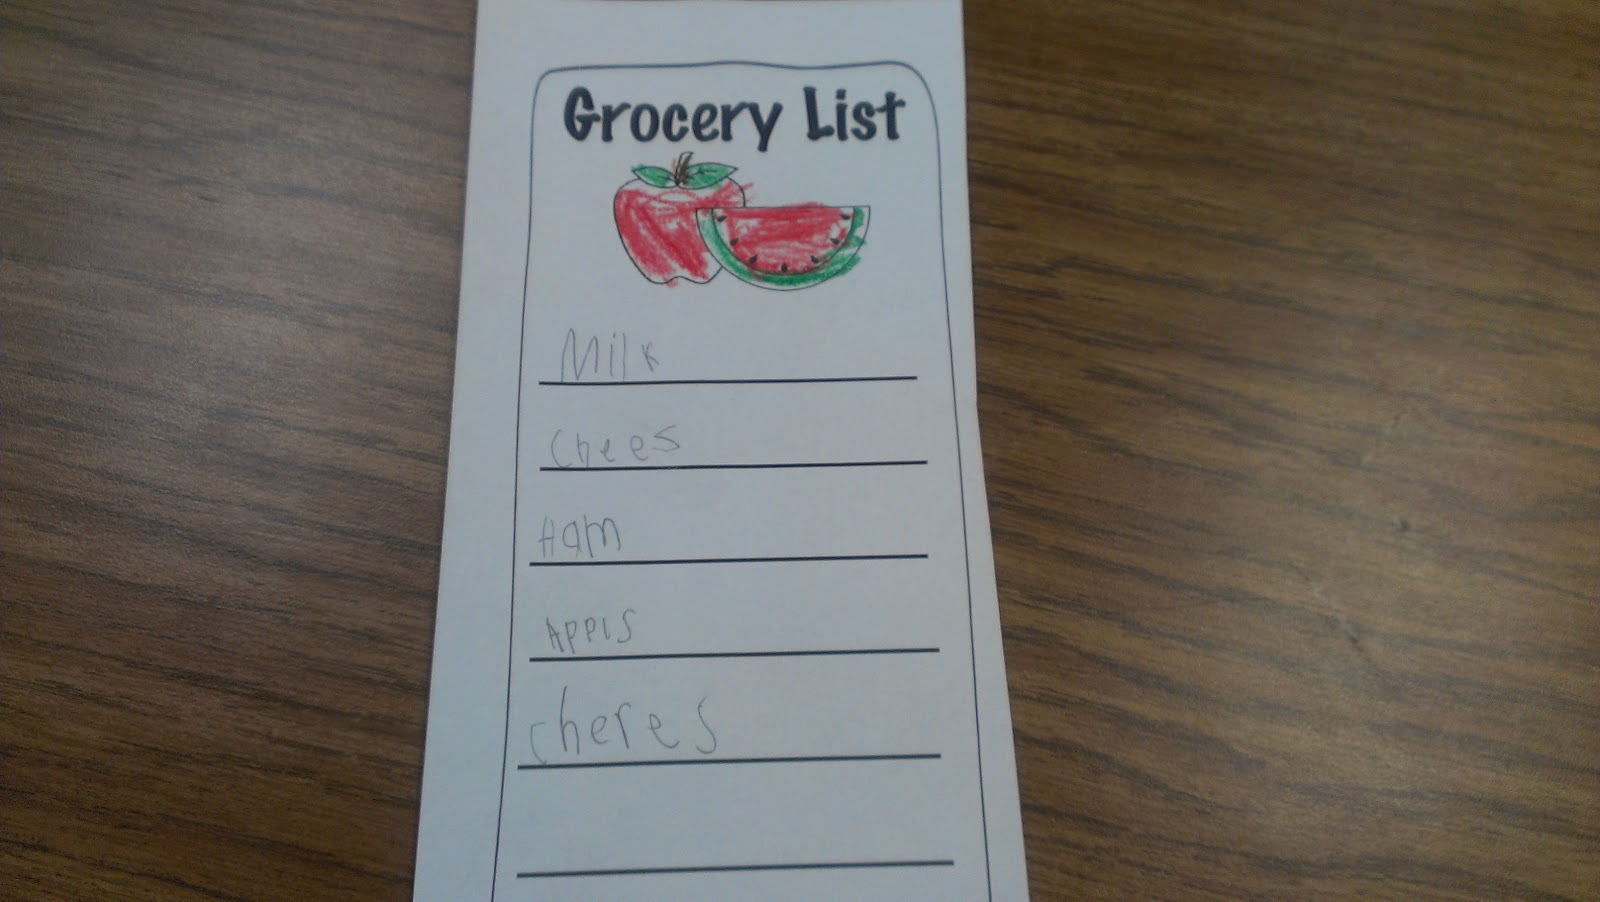 Grocery List
Milk
Chees
Ham
Appls
cheres